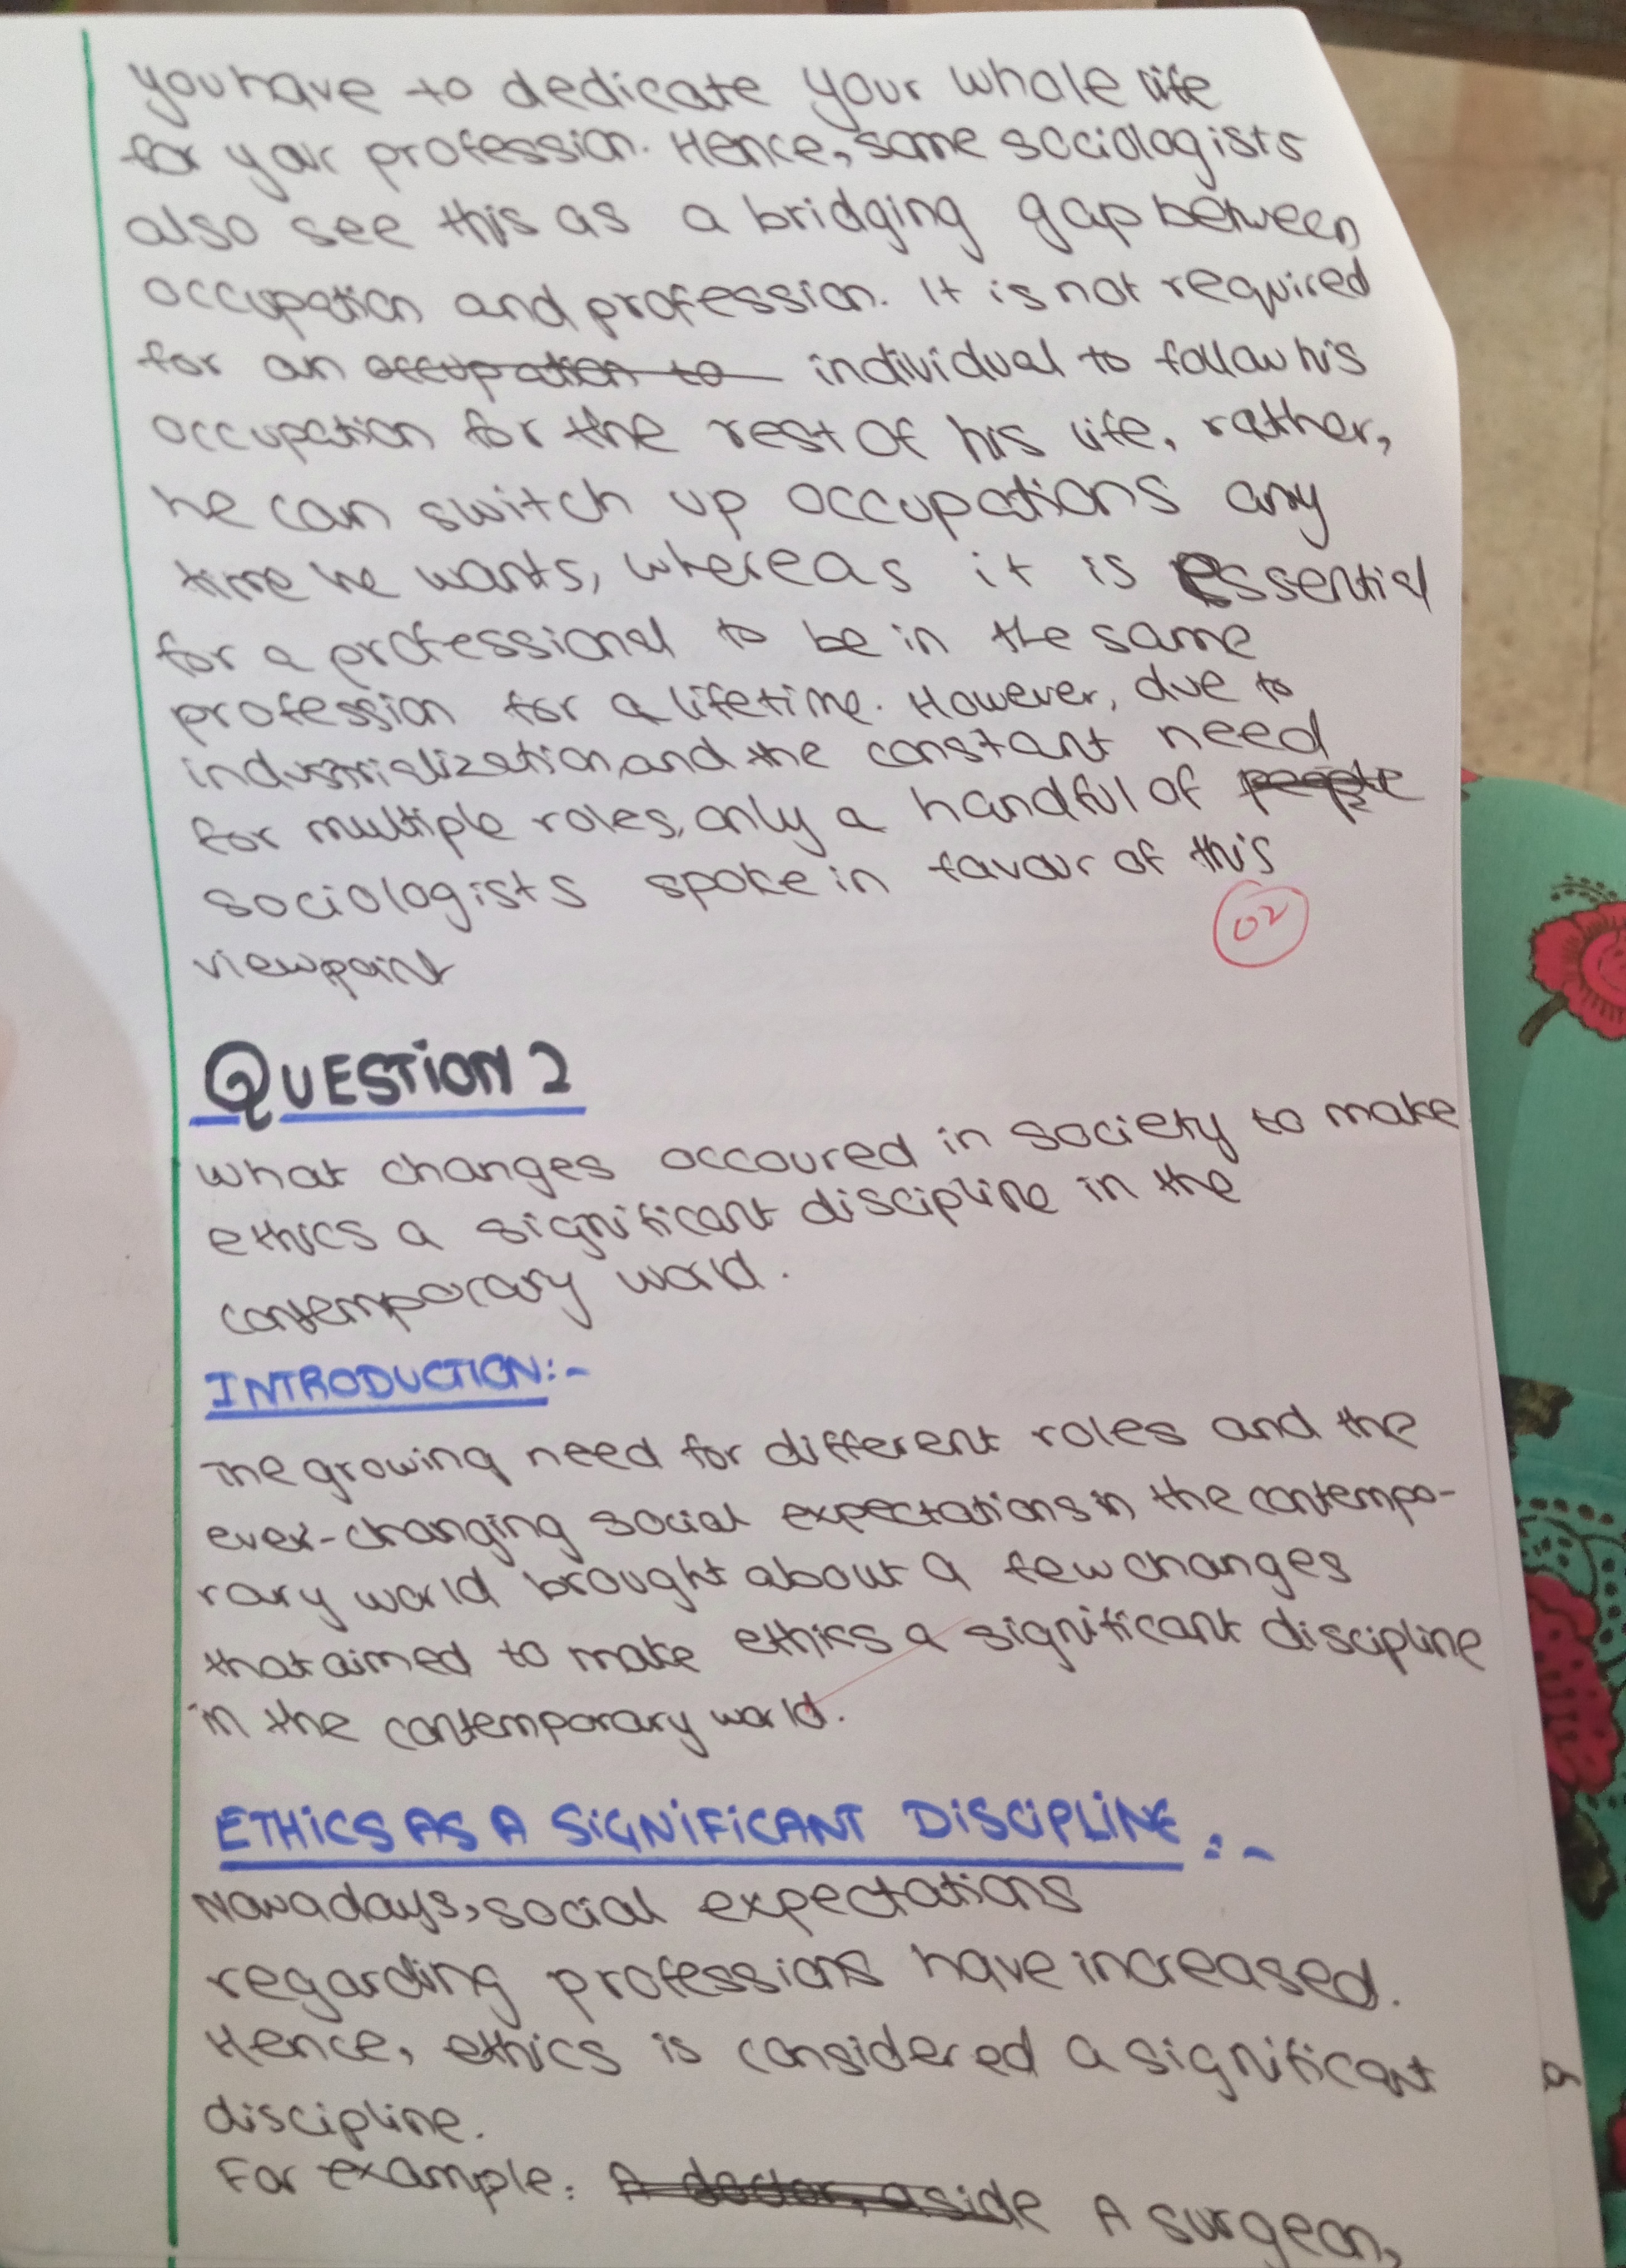 you have to dedicate your whole life
for your profession. Hence, some sociologists
also see this as a bridging gap between
occupation and profession. It is not required
for an occupation to individual to follow his
occupation for the rest of his life, rather,
he can switch up occupations any
time he wants, whereas it is essential
for a professional to be in the same
profession for a lifetime. However, due to
industrialization, and the constant need
for multiple roles, only a handful of people
sociologists spoke in favour of this
02
viewpoint
QUESTION 2
What changes occoured in society to make
ethics a significant discipline in the
contemporary world.
INTRODUCTION:-
The growing need for different roles and the
ever-changing social expectations in the contempo-
rary world brought about a few changes
that aimed to make ethics a significant discipline
in the contemporary world.
ETHICS AS A SIGNIFICANT DISCIPLINE:-
Nowadays, social expectations
regarding professions have increased.
Hence, ethics is considered a significant
discipline.
For example: A doctor, aside A surgeon,